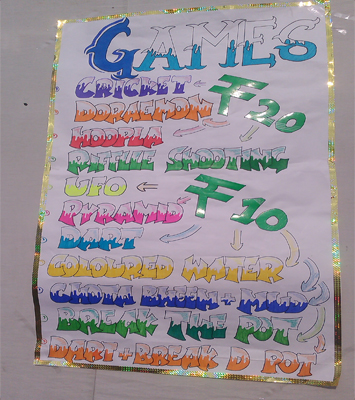 GAMES
CRICKET
DORAEMON
₹20
HOOPLA
RIFFLE SHOOTING
UFO
PYRAMID
₹10
DART
COLOURED WATER
CHOTA BHEEM + MLD
BREAK THE POT
DART + BREAK D POT